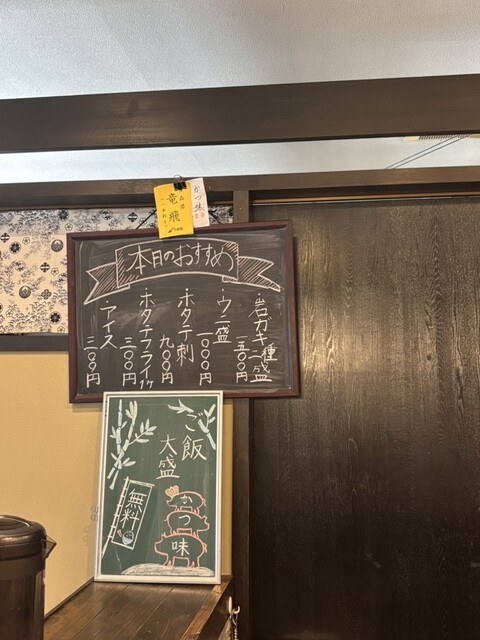 竜飛
かつ味
本日のおすすめ
・岩ガキ二種盛
一五〇〇円
・ウニ一盛
一〇〇〇円
・ホタテ刺
九〇〇円
・ホタテフライ1ケ
三〇〇円
・アイス
三〇〇円
ご飯
大盛
無料
かつ味